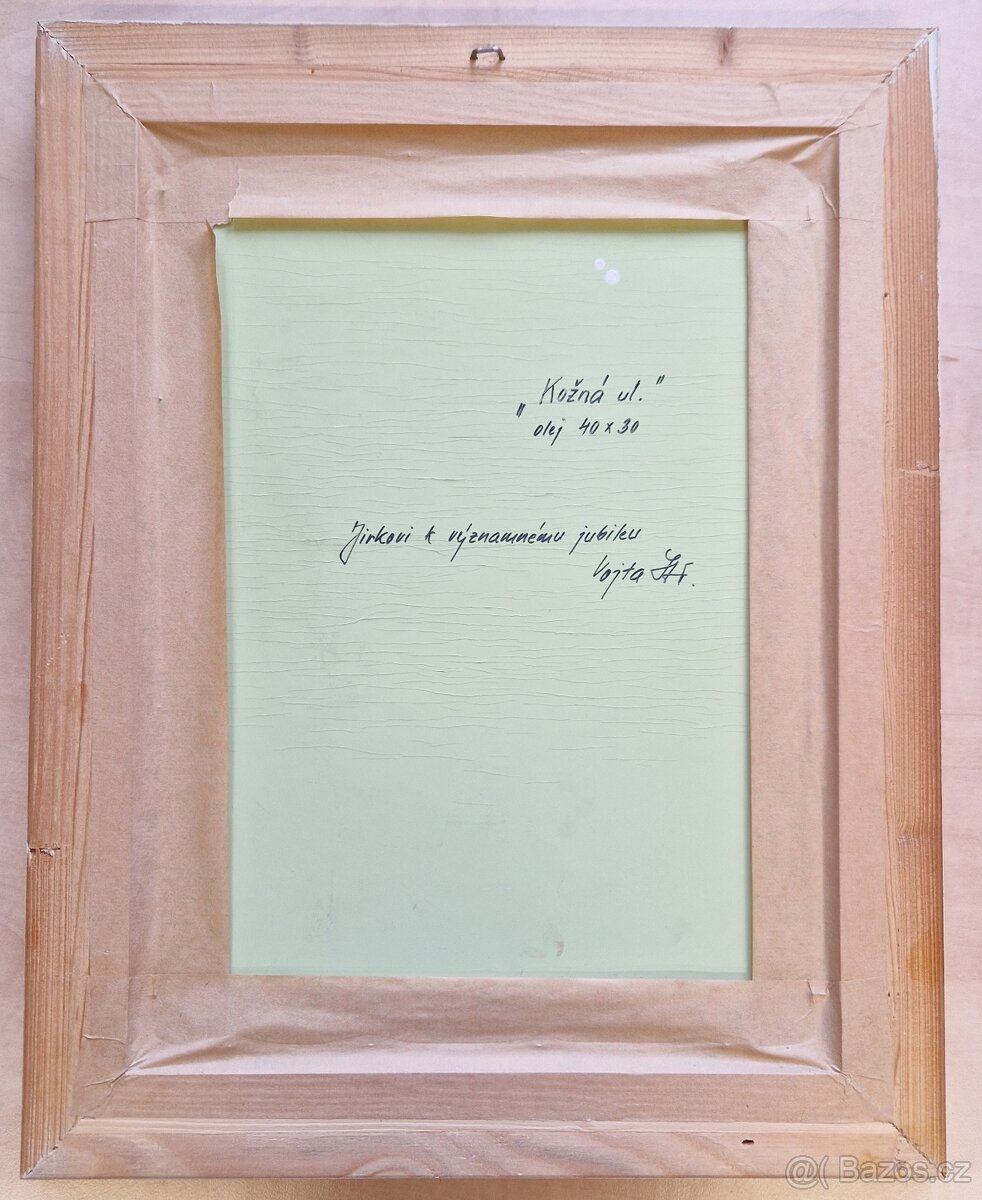 „Kožná ul."
olej 40x30
Jirkovi k významnému jubileu
Vojta
@( Bazos.cz